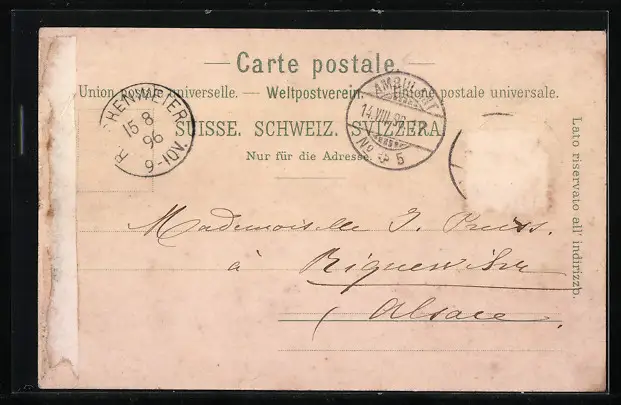 Carte postale.
Union postale universelle. — Weltpostverein. — Unione postale universale.
SUISSE. SCHWEIZ. SVIZZERA.
Nur für die Adresse.
Lato riservato all' indirizzo.
REICHENWEIER
15 8
96
9-10V.
AMBULANT
14.VIII.96
No 5
Mademoiselle J. Preiss.
à Riquewihr
(Alsace.